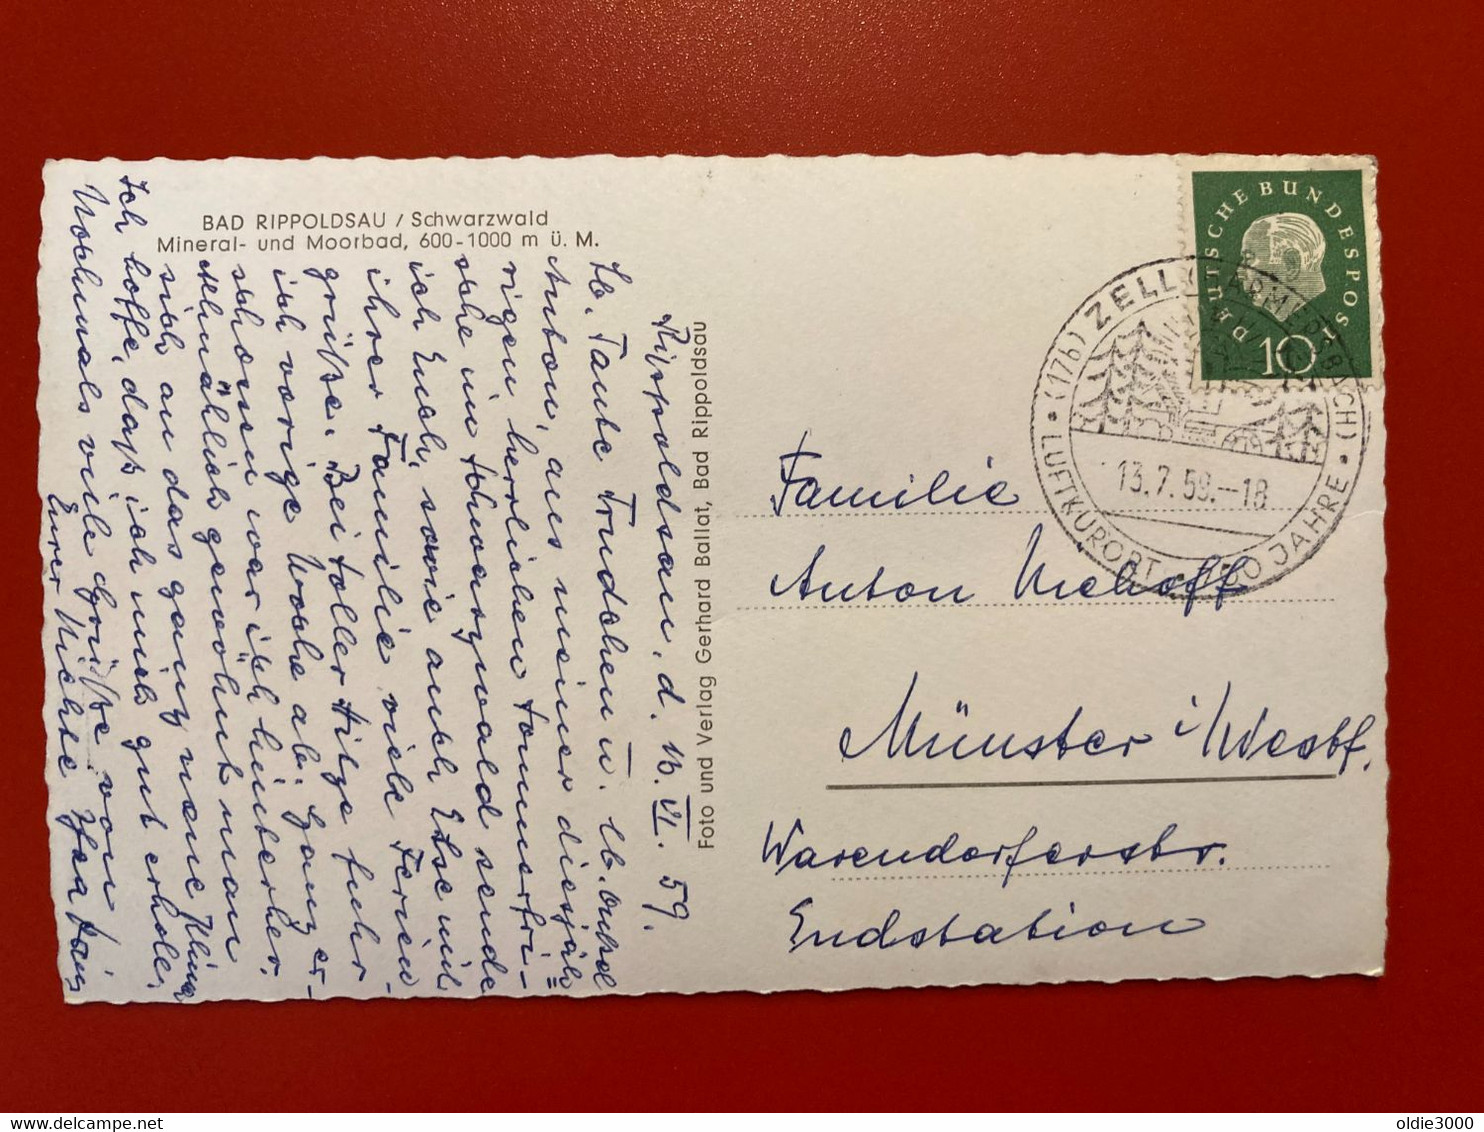 BAD RIPPOLDSAU / Schwarzwald
Mineral- und Moorbad, 600-1000 m ü. M.
Rippoldsau, d. VI. 59.
lb. Tante Trudchen u. lb. Onkel
Anton, aus meiner diesjäh=
rigen herrlichen Sommerfri-
sche im Schwarzwald sende
ich Euch, sowie auch Else mit
ihrer Familie viele Ferien
grüße. Bei toller Hitze fuhr
ich vorige Woche ab. Ganz er-
schossen war ich hinterher.
Allmählich gewöhnt man
sich an das ganz neue Klima
Ich hoffe, daß ich mich gut erhole,
Nochmals viele Grüße von
Eurer Nichte
Foto und Verlag Gerhard Ballat, Bad Rippoldsau
DEUTSCHE BUNDESPOST
10
(17b) ZELL (HARMERSBACH)
13.7.59.-18
LUFTKURORT JAHRE
Familie
Anton
Münster i/Westf.
Warendorferstr.
Endstation
oldie3000